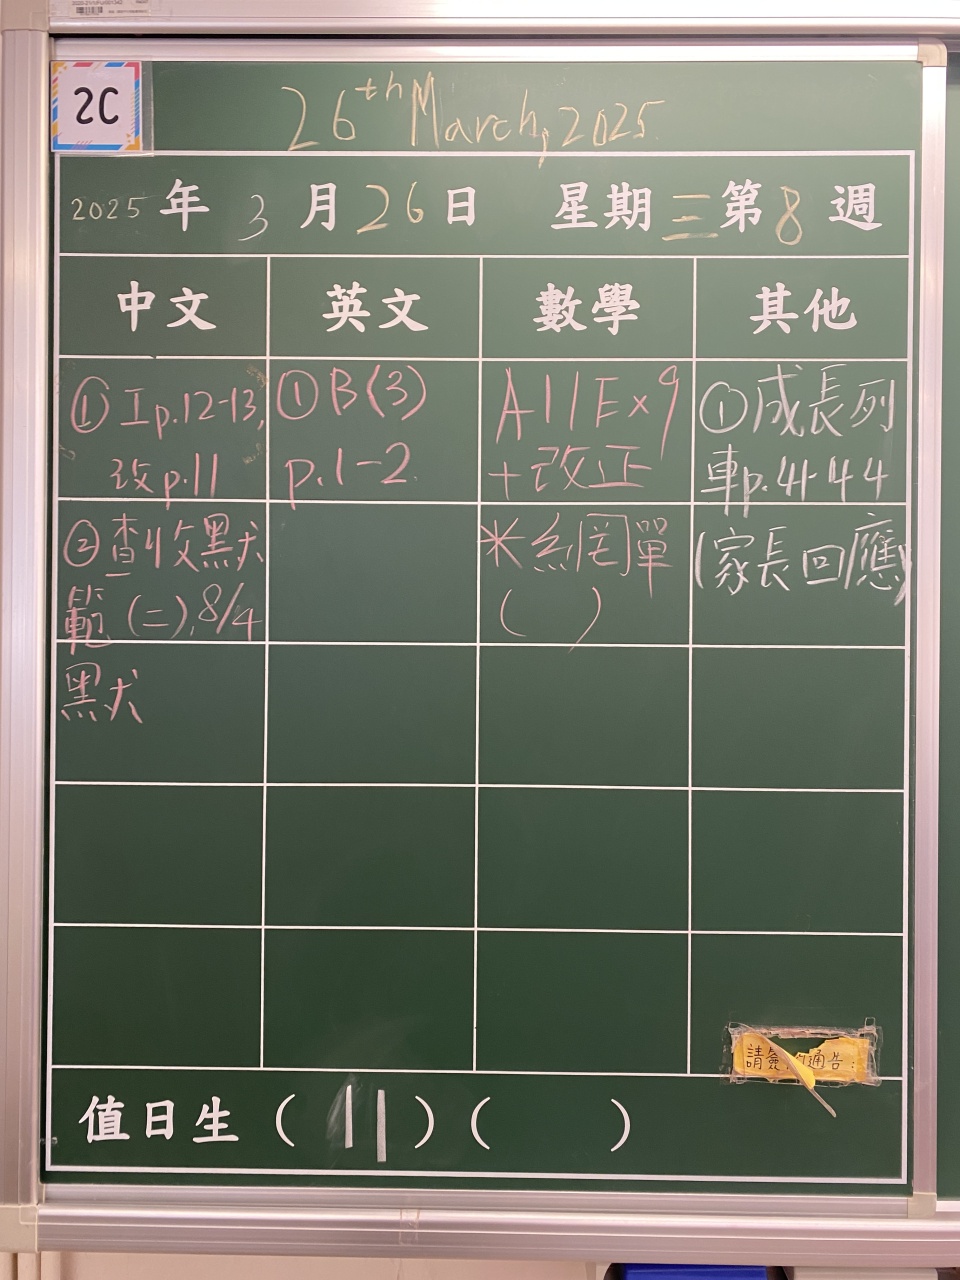 2C
26th March, 2025
2025 年 3 月 26 日 星期 三 第 8 週
中文 英文 數學 其他
① 工p.12-13,
改p.11
② 查收黑犬
範(二), 8/4
黑犬
① B(3)
p.1-2
A11Ex9
+改正
*網單
( )
①成長列
車p.41-44
(家長回應)
請簽 通告:
值日生 ( 11 ) ( )